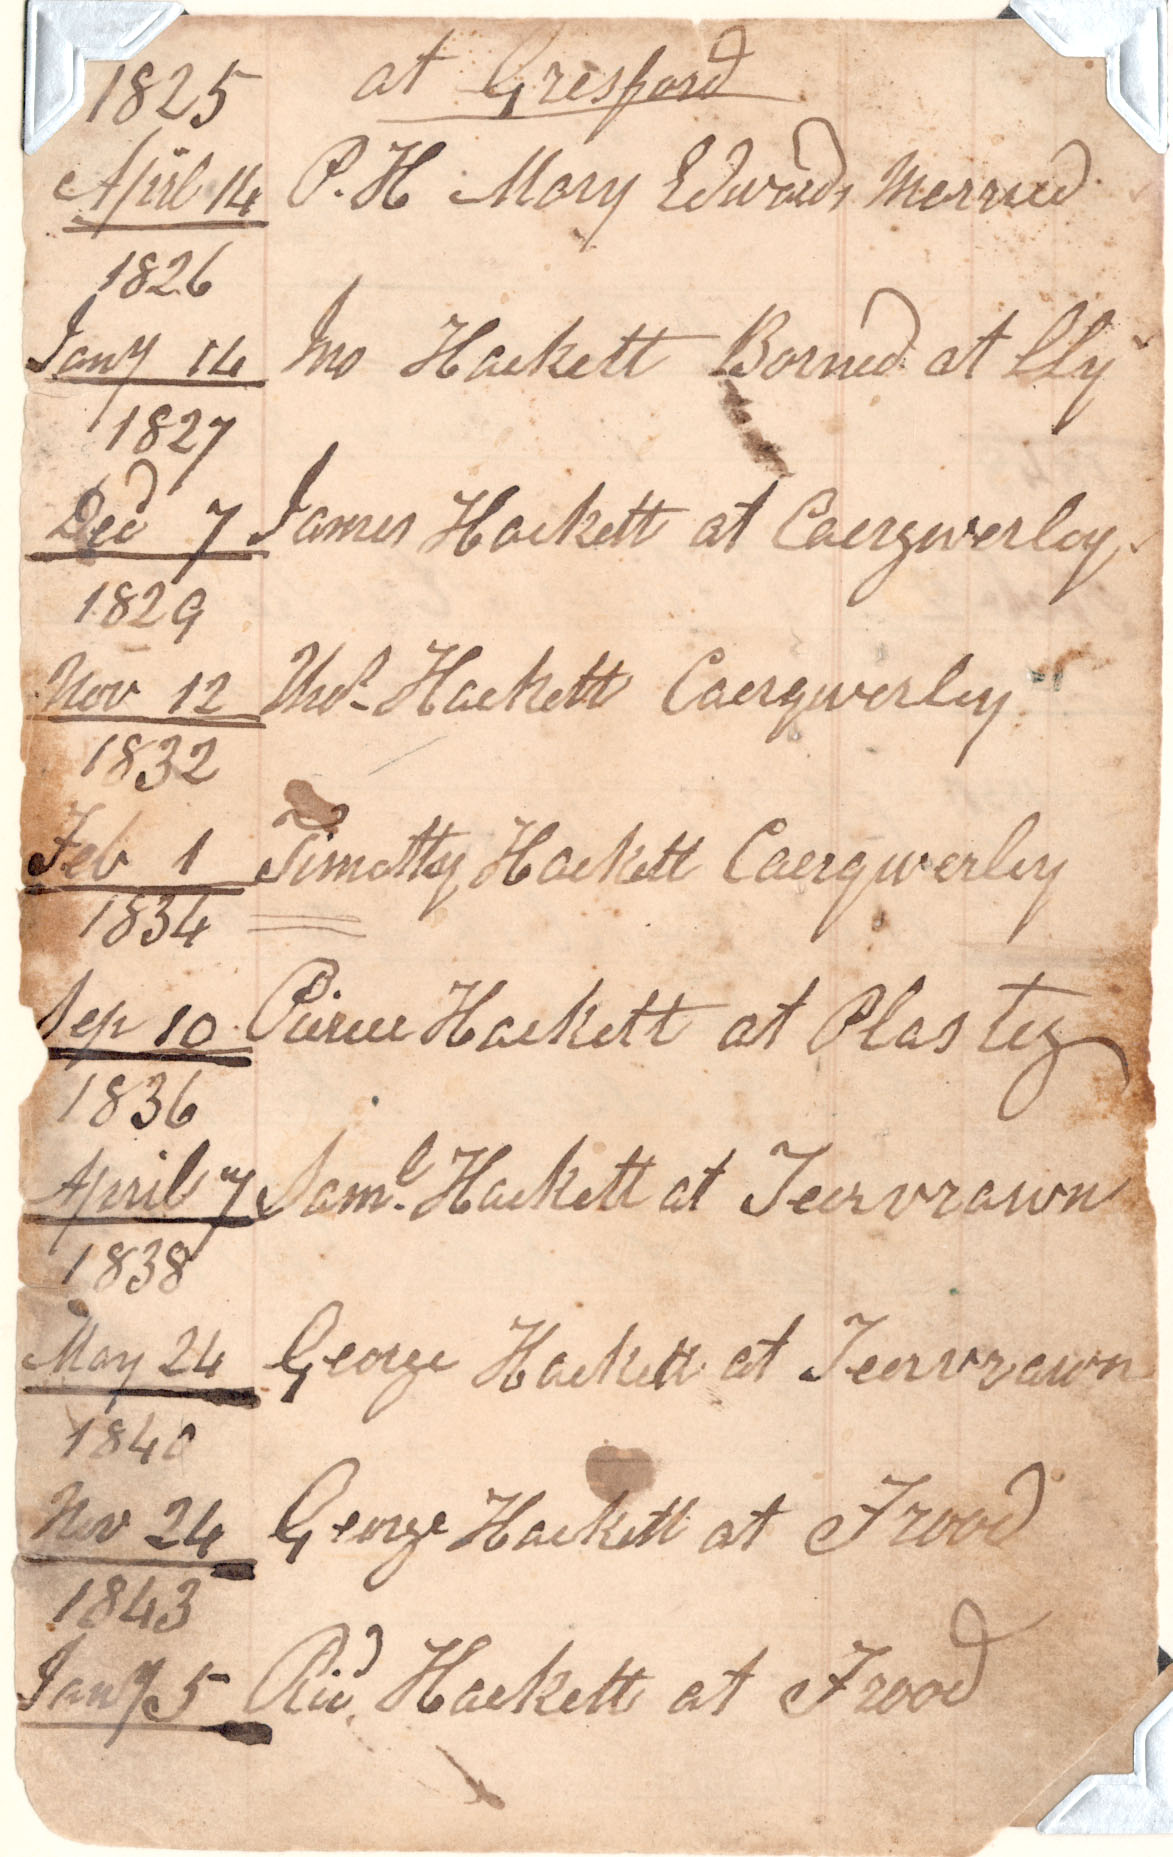 1825 at Gresford
April 14 P. H Mary Edwards Married
1826
Jany 14 Jno Hackett Borned at Lly
1827
Decd 7 James Hackett at Caergwerley
1829
Nov 12 Thos. Hackett Caergwerley
1832
Feb 1 Timothy Hackett Caergwerley
1834
Sep 10 Pierce Hackett at Plas teg
1836
April 7 Saml. Hackett at Teervrawn
1838
May 24 George Hackett at Teervrawn
1840
Nov 24 George Hackett at Frood
1843
Jany 5 Ricd Hackett at Frood